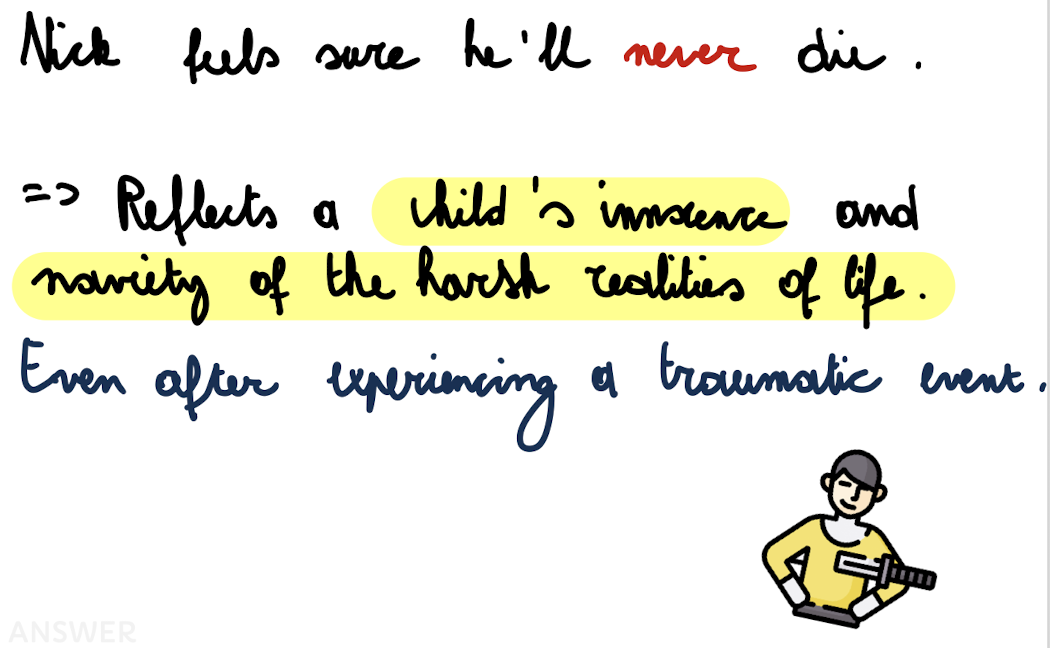 Nick feels sure he'll never die.
=> Reflects a child's innocence and
naviety of the harsh realities of life.
Even after experiencing a traumatic event.
ANSWER